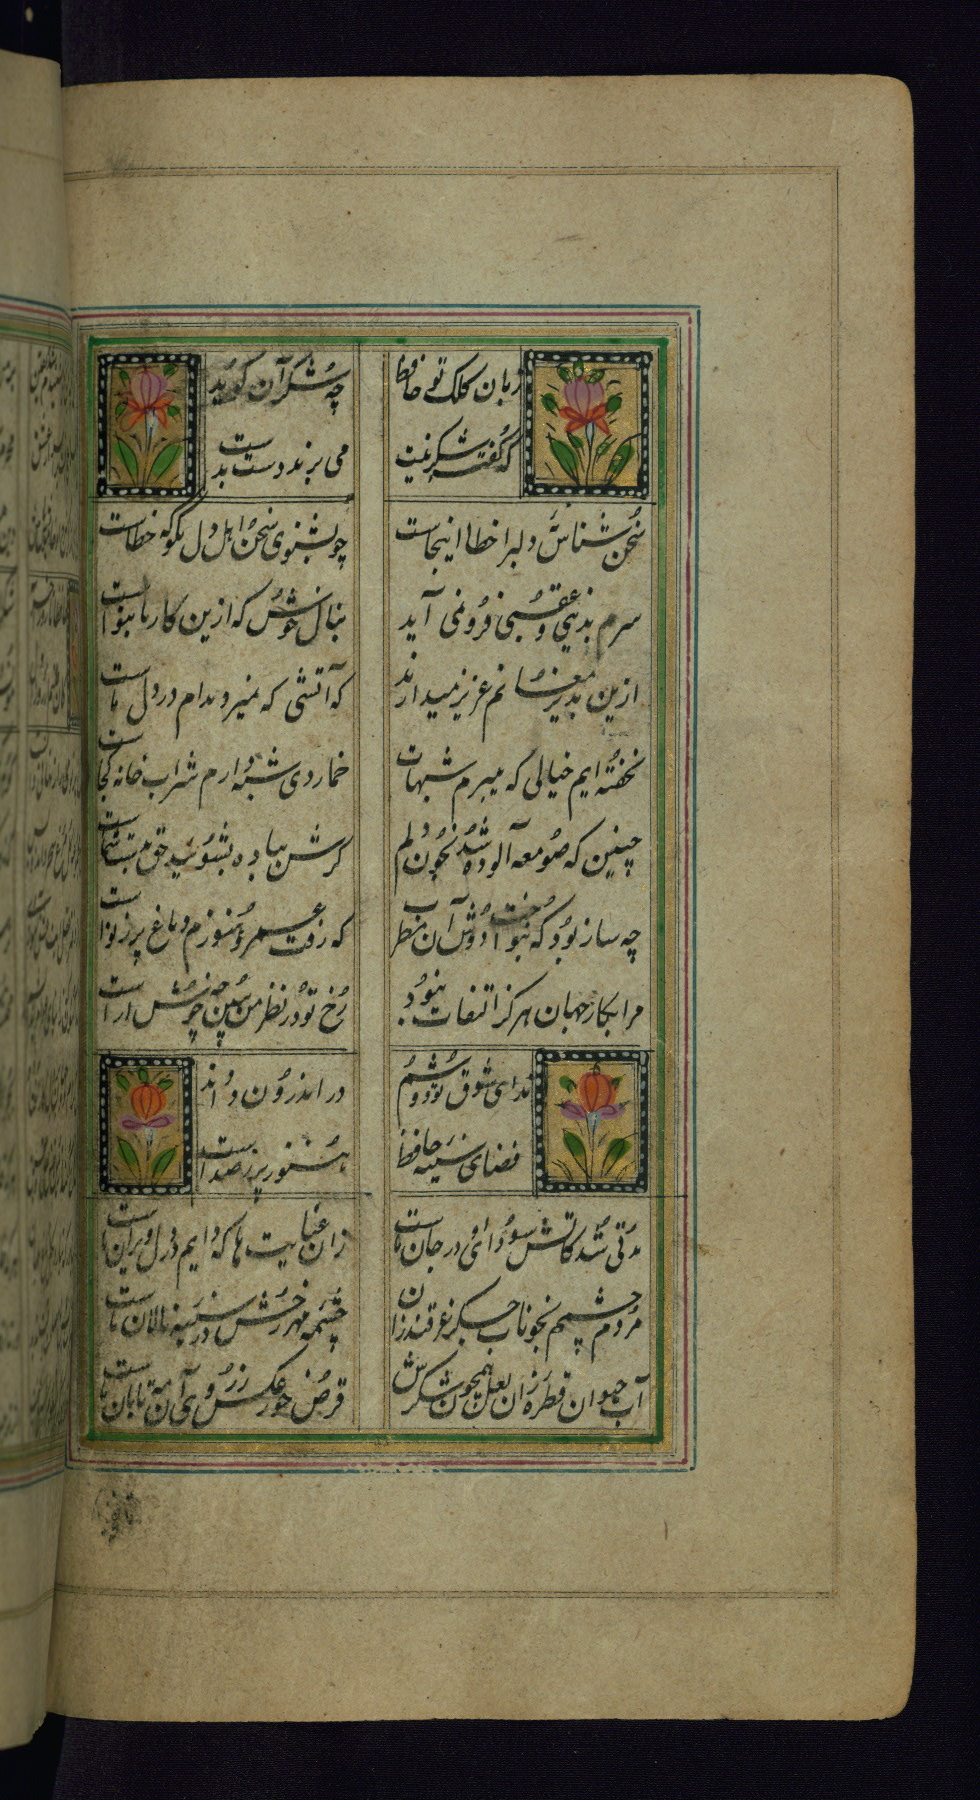 زبان کلک تو حافظ چه شکر آن گوید
که گفته سخنت می برند دست بدست
چو بشنوی سخن اهل دل مگو که خطاست
سخن شناس نه دلبرا خطا اینجاست
سرم بدنیی و عقبی فرو نمی آید
از این بدیر مغانم عزیز میدارند
که آتشی که نمیرد مدام در دل ماست
نخفته ایم خیالی که میبرم شبهاست
خمار دی شبه دارم شراب خانه کجاست
چنین که صومعه آلوده شد بخون دلم
گرش بباده بشوئید حق بدست شماست
چه ساز بود که بنواخت دوش آن مطرب
که رفت عمر و هنوزم دماغ پر ز نواست
مرا بکار جهان هرگز التفات نبود
رخ تو در نظر من چنین خوشش آراست
ندای شوق تو دوشم در اندرون دادند
فضای سینه حافظ هنوز پر ز صداست
مدتی شد کاتش سودای او در جان ماست
زان عنایت ها که دایم در دل ویران ماست
مردم چشمم بخوناب جگر غرقند زان
چشمه مهر رخش در سینه نالان ماست
آب حیوان قطره زان لعل همچون شکرش
قرص خور عکسی ز روی آن مه تابان ماست